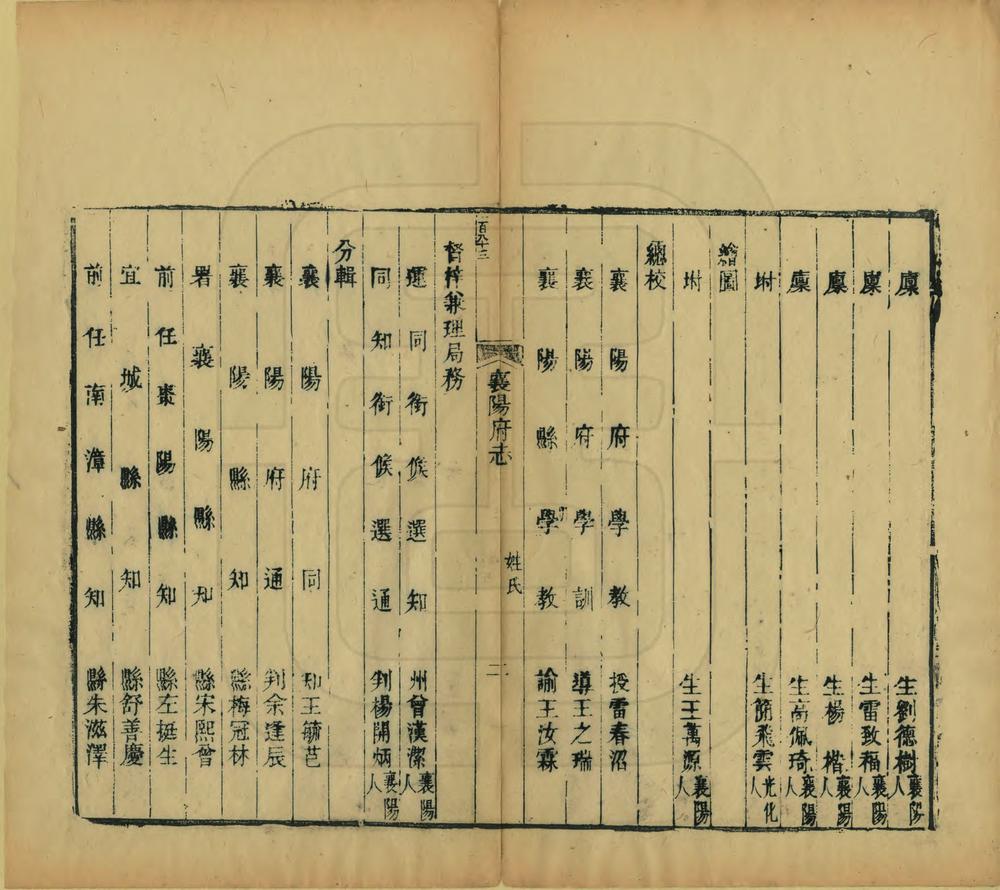 廩生劉德樹襄陽人
廩生雷致福襄陽人
廩生楊楷襄陽人
廩生高佩琦襄陽人
附生簡飛雲光化人
繪圖
附生王萬源襄陽人
總校
襄陽府學教授雷春沼
襄陽府學訓導王之瑞
襄陽縣學教諭王汝霖
襄陽府志
姓氏
二
百八十三
督梓兼理局務
運同銜候選知州曾漢潔襄陽人
同知銜候選通判楊開炳襄陽人
分輯
襄陽府同知王毓芑
襄陽府通判余逢辰
襄陽縣知縣梅冠林
署襄陽縣知縣宋熙曾
前任棗陽縣知縣左挺生
宜城縣知縣舒善慶
前任南漳縣知縣朱滋澤